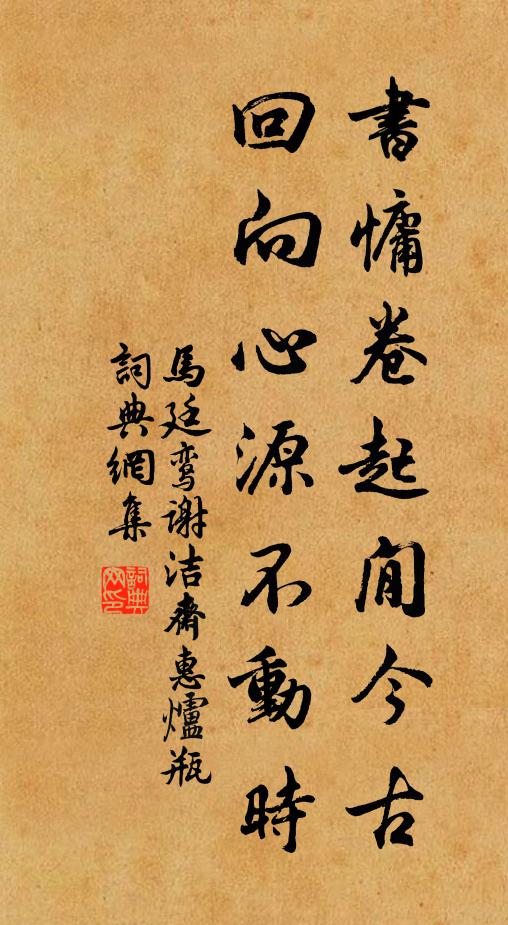 書慵卷起閒今古
回向心源不動時
馬廷鸾謝洁齋惠爐瓶
詞典網集
詞典网印